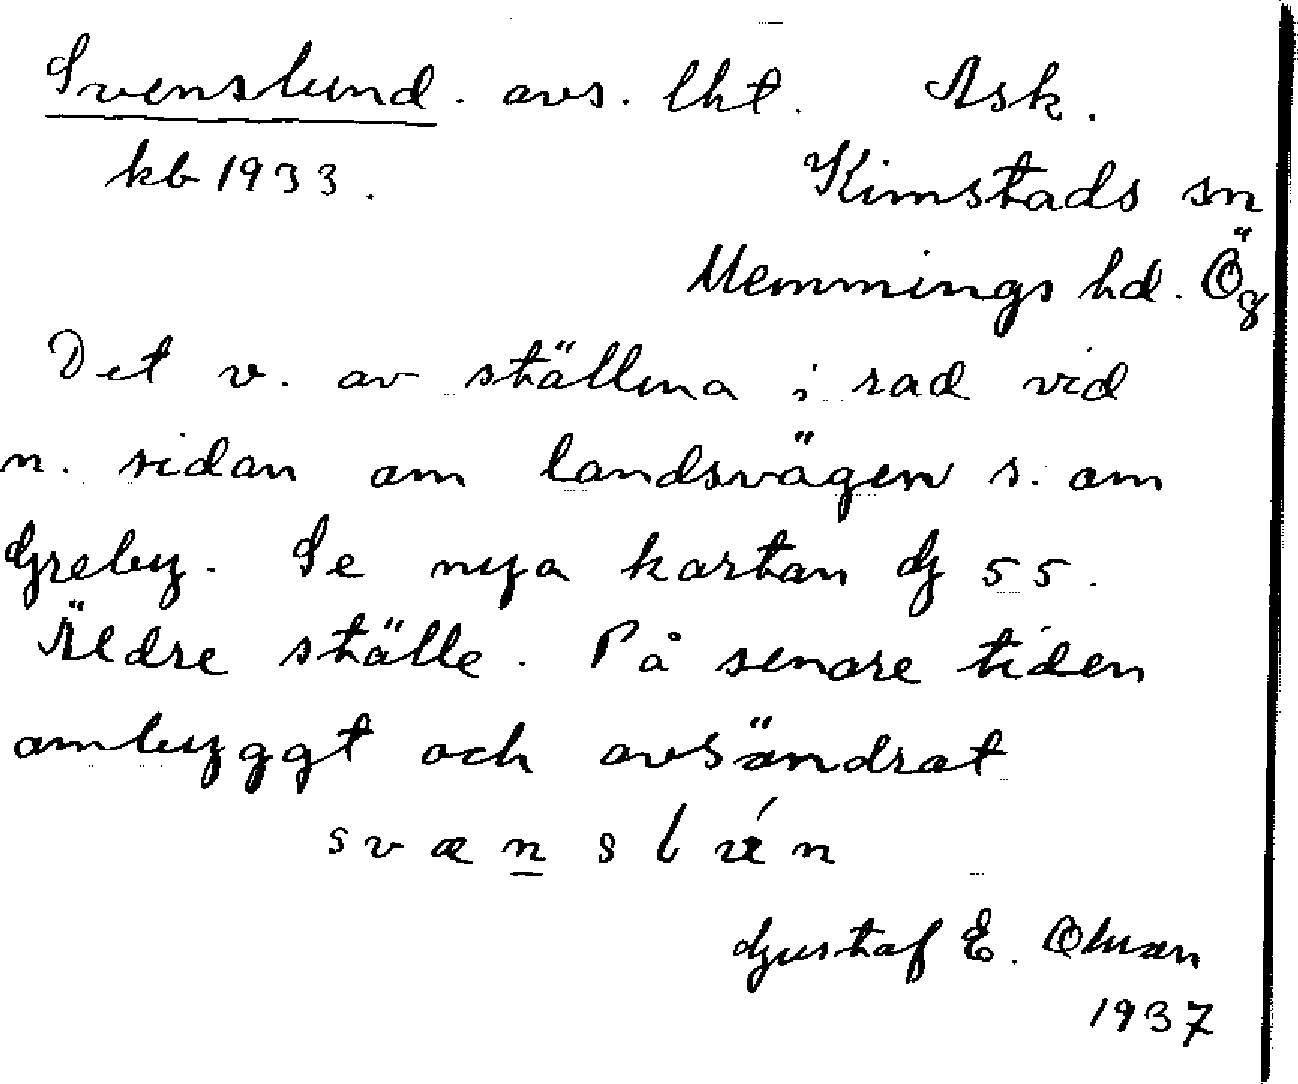 Svenslund. avs. lht. Ask.
kb 1933. Kimstads sn
Memmings hd. Ög
Det v. av ställena i rad vid
n. sidan om landsvägen s. om
Greby. Se nya kartan G 55.
Äldre ställe. På senare tiden
ombyggt och avsöndrat
svænslún
Gustaf E. Olman
1937